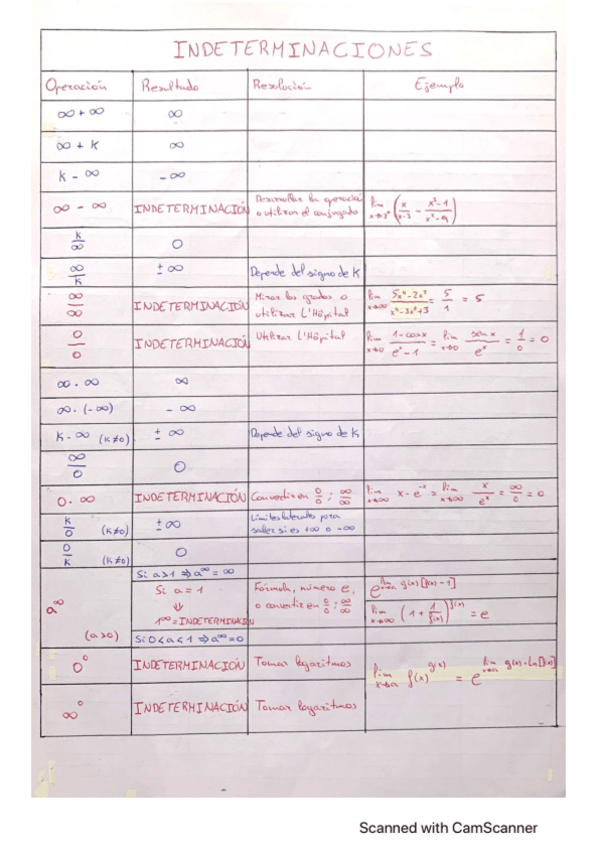 INDETERMINACIONES
Operación Resultado Resolución Ejemplo
∞ + ∞ ∞
∞ + K ∞
K - ∞ - ∞
∞ - ∞ INDETERMINACIÓN Desarrollar la operación o utilizar el conjugado lim x→3⁺ (x/(x-3) - (x²-1)/(x²-9))
K/∞ 0
∞/K ± ∞ Depende del signo de K
∞/∞ INDETERMINACIÓN Mirar los grados o utilizar L'Hôpital lim x→∞ (5x⁴-2x²)/(x⁴-3x²+3) = 5/1 = 5
0/0 INDETERMINACIÓN Utilizar L'Hôpital lim x→0 (1-cosx)/(eˣ-1) = lim x→0 senx/eˣ = 1/0 = 0
∞ · ∞ ∞
∞ · (-∞) - ∞
K · ∞ (K≠0) ± ∞ Depende del signo de K
∞/0 0
0 · ∞ INDETERMINACIÓN Convertir en 0/0 ; ∞/∞ lim x→∞ x - e⁻ˣ = lim x→∞ x/eˣ = ∞/0 = 0
K/0 (K≠0) ±∞ Límites laterales para saber si es +∞ o -∞
0/K (K≠0) 0
Si a>1 ⇒ a^∞ = ∞
a^∞ Si a = 1 Fórmula, número e, e^(lim x→a g(x)[f(x)-1])
⇓ o convertir en 0/0 ; ∞/∞
(a>0) 1^∞ = INDETERMINACIÓN lim x→∞ (1 + 1/f(x))^f(x) = e
Si 0<a<1 ⇒ a^∞ = 0
0⁰ INDETERMINACIÓN Tomar logaritmos lim x→a f(x)^g(x) = e^(lim x→a g(x)·Ln[f(x)])
∞⁰ INDETERMINACIÓN Tomar logaritmos
Scanned with CamScanner